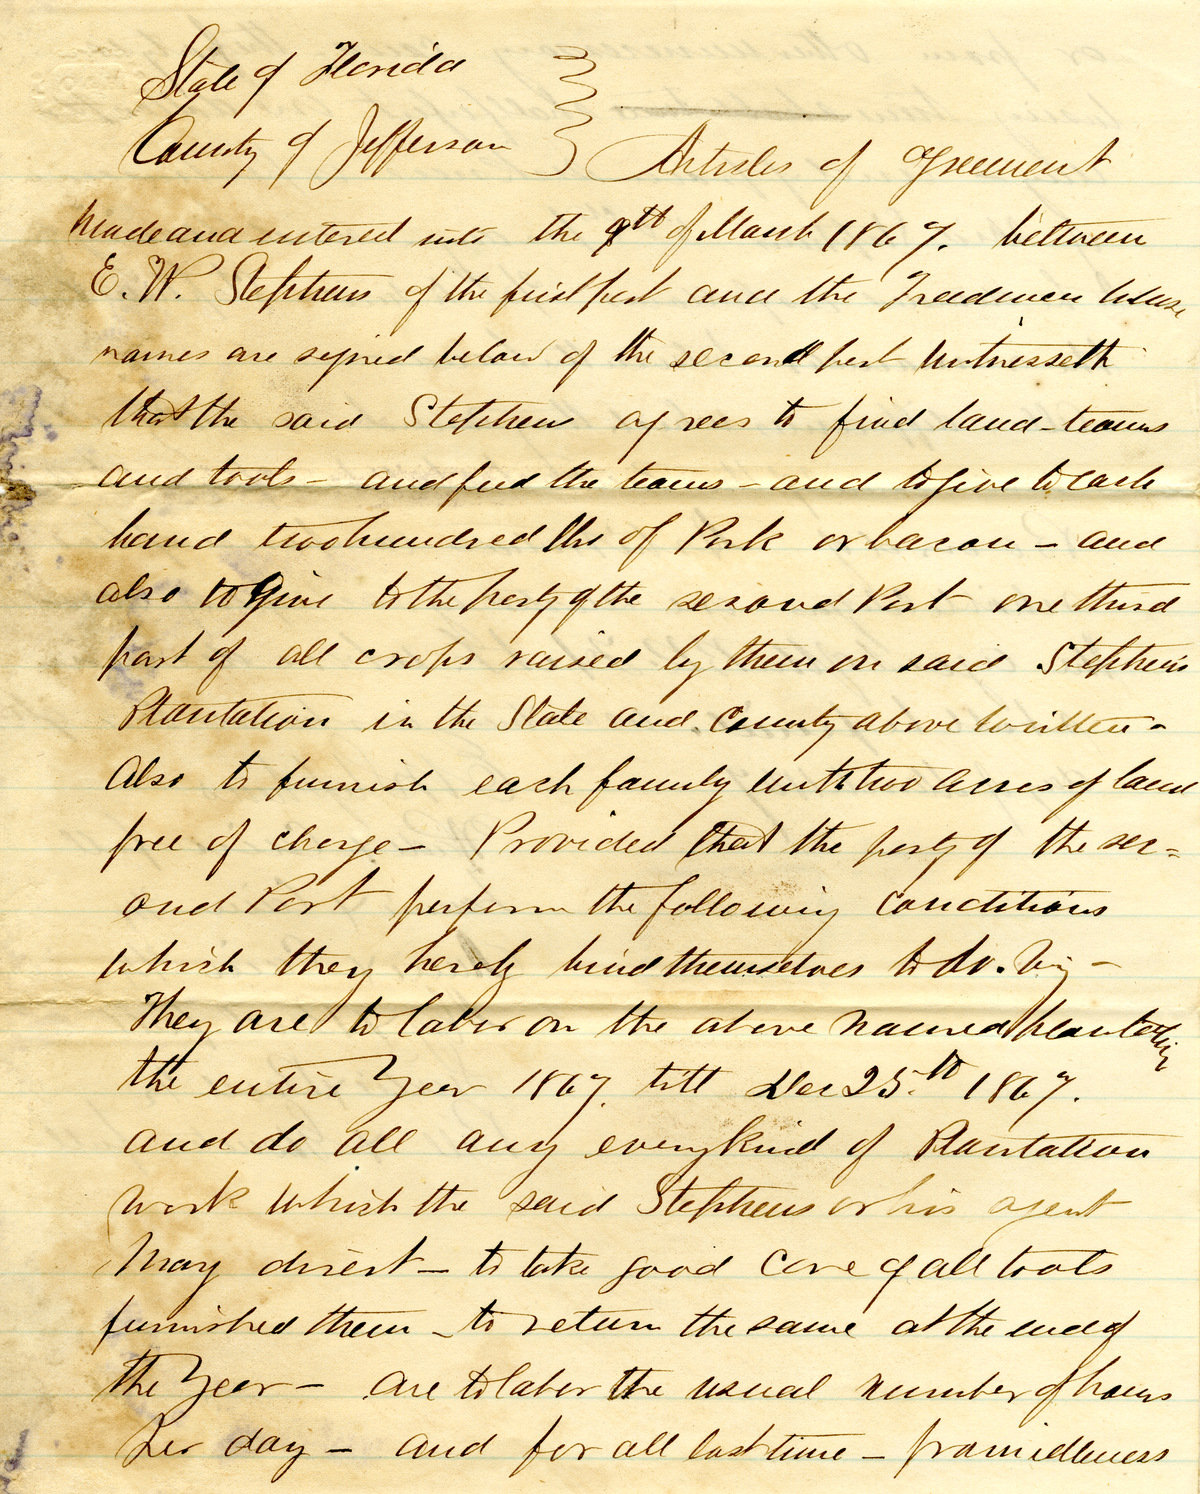 State of Florida
County of Jefferson Articles of Agreement
Made and entered into the 9th of March 1867. between
E. W. Stephens of the first part and the Freedmen whose
names are signed below of the second part Witnesseth
that the said Stephens agrees to find land - teams
and tools - and feed the teams - and to give to each
hand two hundred lbs of Pork or bacon - and
also to give to the party of the second Part one third
part of all crops raised by them on said Stephens
Plantation in the State and County above written -
Also to furnish each family with two acres of land
free of charge - Provided that the party of the sec=
ond Part perform the following conditions
which they hereby bind themselves to do. Viz -
They are to labor on the above named plantation
the entire Year 1867. till Dec 25.th 1867.
and do all any every kind of Plantation
work which the said Stephens or his agent
May direct - to take good care of all tools
furnished them - to return the same at the end of
the Year - are to labor the usual number of hours
Per day - and for all lost time - from idleness